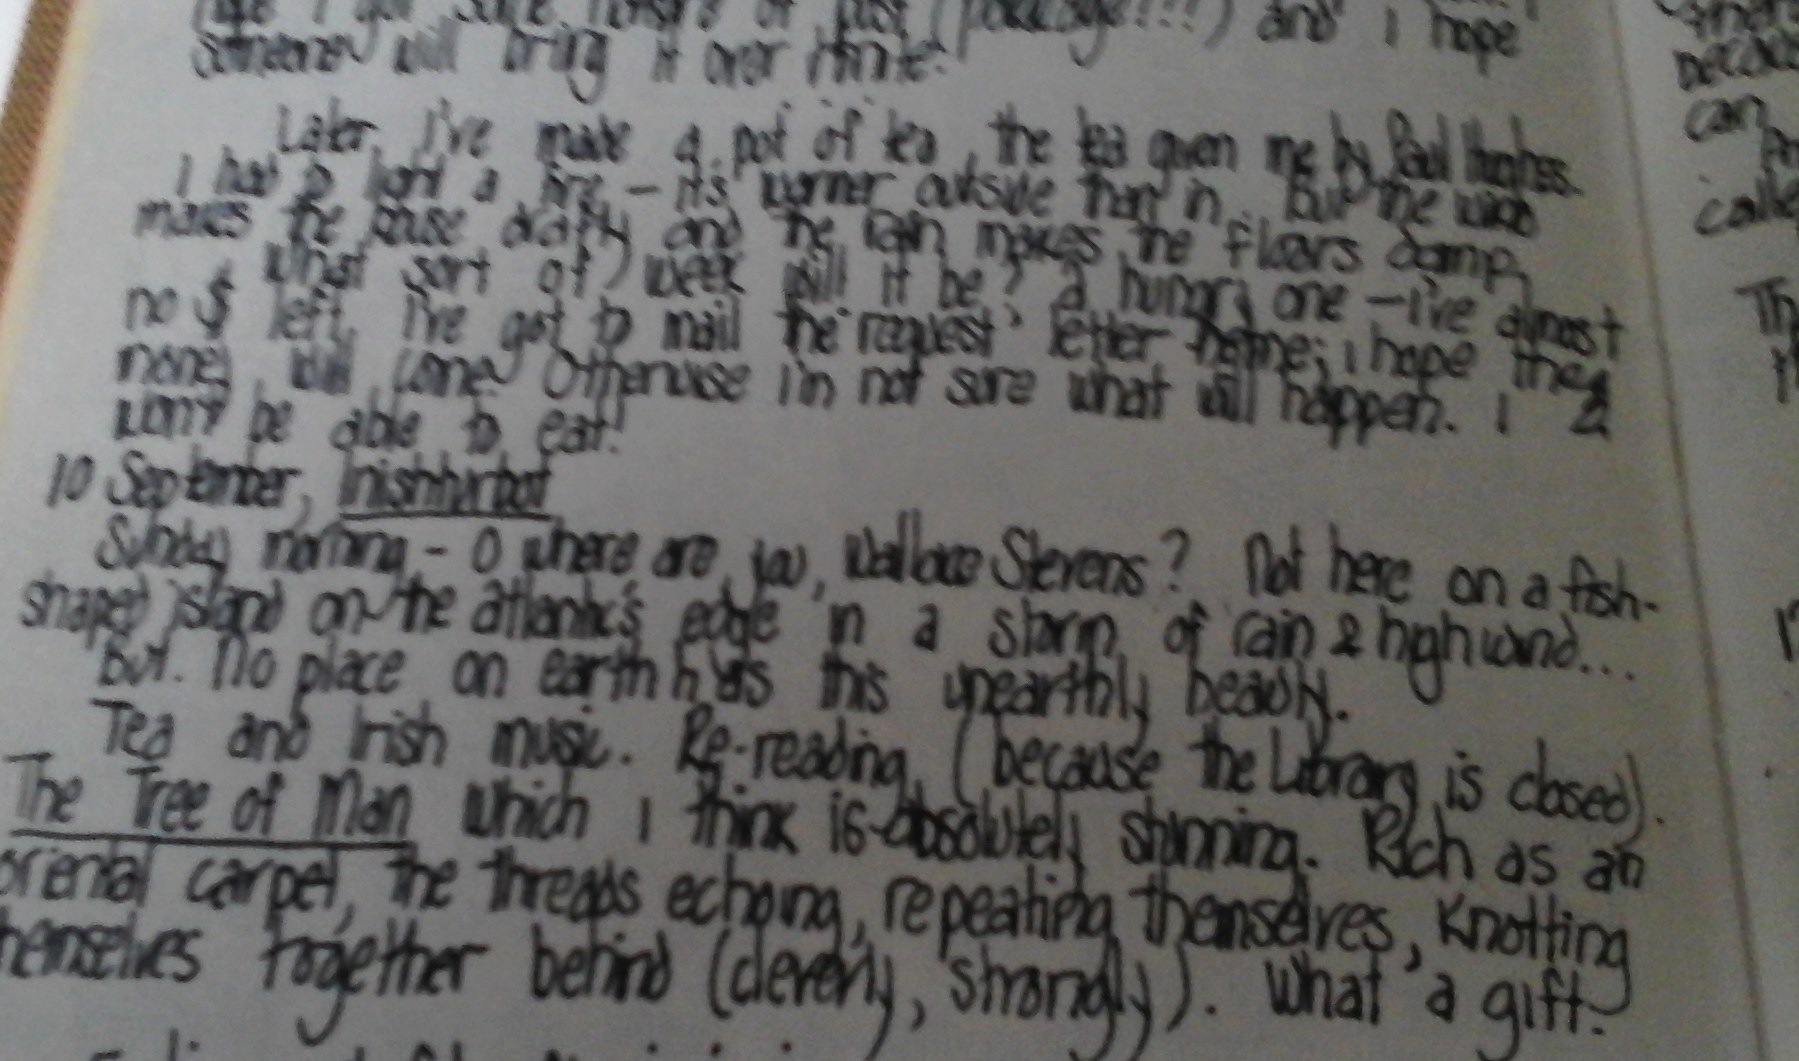 someone will bring it over
Later, I've made a pot of tea, the tea given me by Paul Hughes.
I had to light a fire – it's warmer outside than in. But the wind
makes the house drafty and the rain makes the floors damp.
What sort of week will it be? A hungry one – I've almost
no $ left. I've got to mail the 'request' letter home; I hope the
money will come. Otherwise I'm not sure what will happen. I
won't be able to eat!
10 September, Inishturbot
Sunday morning – O where are you, Wallace Stevens? Not here on a fish-
shaped island on the Atlantic's edge in a storm of rain & high wind...
But. No place on earth has this unearthly beauty.
Tea and Irish music. Re-reading (because the Library is closed).
The Tree of Man which I think is absolutely stunning. Rich as an
oriental carpet, the threads echoing, repeating themselves, knotting
themselves together behind (cleverly, strongly). What a gift.